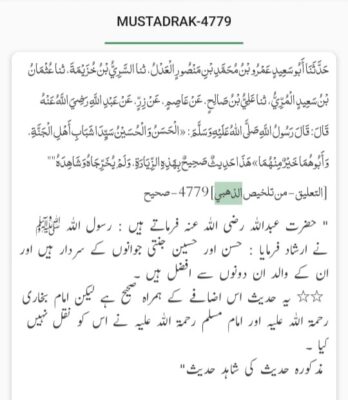 MUSTADRAK-4779
حَدَّثَنَا أَبُو سَعِيدٍ عَمْرُو بْنُ مُحَمَّدِ بْنِ مَنْصُورٍ الْعَدْلُ، ثنا السَّرِيُّ بْنُ خُزَيْمَةَ، ثنا عُثْمَانُ
بْنُ سَعِيدٍ الْمُرِّيُّ، ثنا عَلِيُّ بْنُ صَالِحٍ، عَنْ عَاصِمٍ، عَنْ زِرٍّ، عَنْ عَبْدِ اللَّهِ رَضِيَ اللَّهُ عَنْهُ
قَالَ: قَالَ رَسُولُ اللَّهِ صَلَّى اللهُ عَلَيْهِ وَسَلَّمَ: «الْحَسَنُ وَالْحُسَيْنُ سَيِّدَا شَبَابِ أَهْلِ الْجَنَّةِ،
وَأَبُوهُمَا خَيْرٌ مِنْهُمَا» هَذَا حَدِيثٌ صَحِيحٌ بِهَذِهِ الزِّيَادَةِ، وَلَمْ يُخْرِجَاهُ وَشَاهِدُهُ""
[التعليق - من تلخيص الذهبي] 4779 - صحيح
" حضرت عبداللہ رضی اللہ عنہ فرماتے ہیں : رسول اللہ ﷺ
نے ارشاد فرمایا : حسن اور حسین جنتی جوانوں کے سردار ہیں اور
ان کے والد ان دونوں سے افضل ہیں ۔
☆☆ یہ حدیث اس اضافے کے ہمراہ صحیح ہے لیکن امام بخاری
رحمۃ اللہ علیہ اور امام مسلم رحمۃ اللہ علیہ نے اس کو نقل نہیں
کیا ۔
مذکورہ حدیث کی شاہد حدیث"